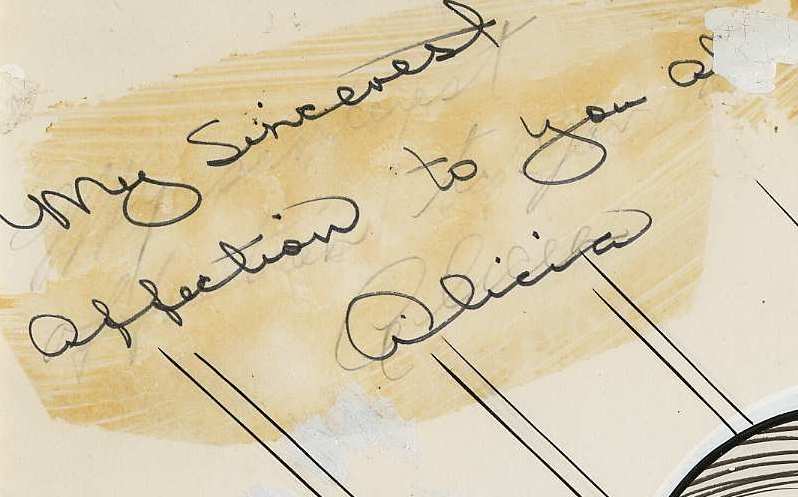 My Sincerest
affection to you
Alicia